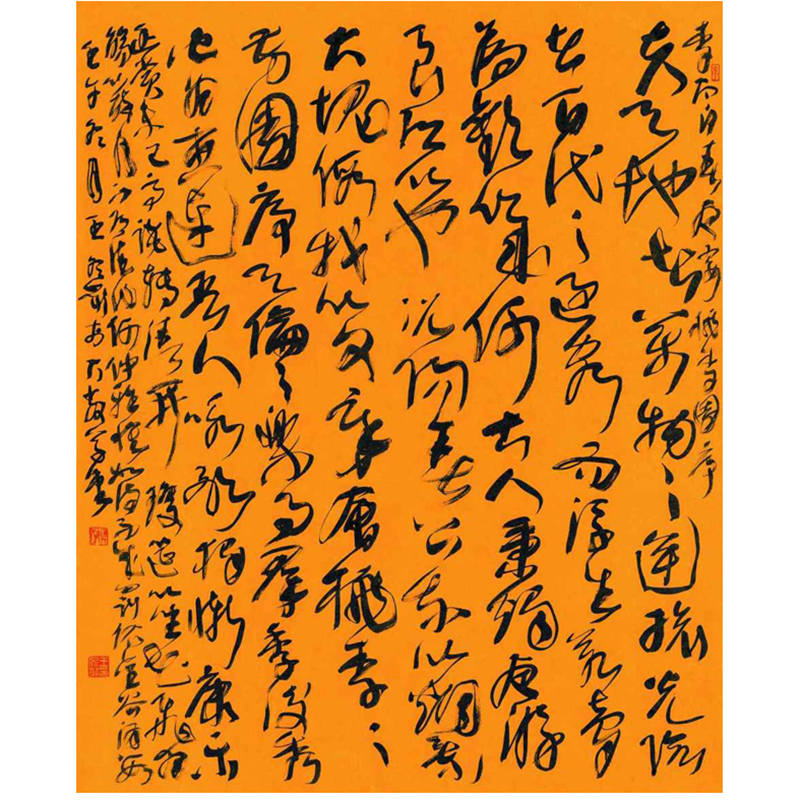 李太白春夜宴桃李園序
夫天地者萬物之逆旅光陰
者百代之過客而浮生若夢
為歡幾何古人秉燭夜游
良有以也況陽春召我以煙景
大塊假我以文章會桃李之
芳園序天倫之樂事羣季俊秀
皆為惠連吾人詠歌獨慚康樂
幽賞未已高談轉清開瓊筵以坐花飛羽
觴而醉月不有佳作何伸雅懷如詩不成罰依金谷酒數
壬午冬月王冬齡